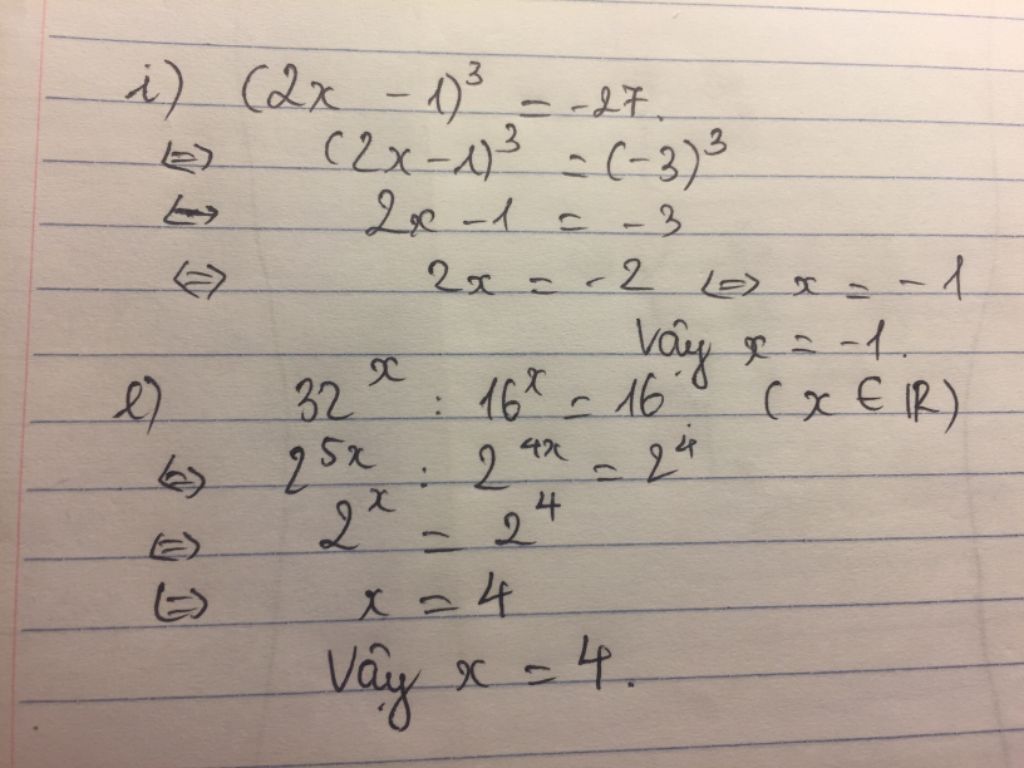 i) (2x - 1)³ = -27.
⇔ (2x - 1)³ = (-3)³
⇔ 2x - 1 = -3
⇔ 2x = -2 ⇔ x = -1
Vậy x = -1.
l) 32ˣ : 16ˣ = 16 (x ∈ ℝ)
⇔ 2⁵ˣ : 2⁴ˣ = 2⁴
⇔ 2ˣ = 2⁴
⇔ x = 4
Vậy x = 4.